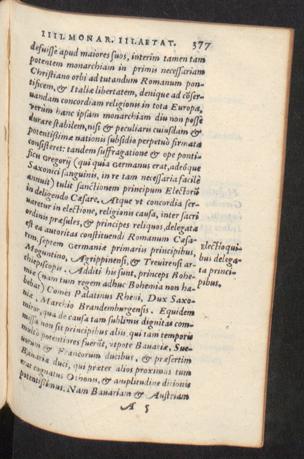 IIII. MONAR. III. AETAT. 377
defuisse apud maiores suos, interim tamen tam
potentem monarchiam in primis necessariam
Christiano orbi ad tutandum Romanum pon-
tificem, & Italiæ libertatem, denique ad cōser-
uandam concordiam religionis in tota Europa,
verùm hanc ipsam monarchiam diu non posse
durare stabilem, nisi & peculiari cuiusdam &
potentissimæ nationis subsidio perpetuò firmata
consisteret: tandem suffragatione & ope ponti-
ficis Gregorij (qui quia Germanus erat, adeóque
Saxonici sanguinis, in re tam necessaria facilè
annuit) tulit sanctionem principum Electorū
in deligendo Cæsare. Atque vt concordia ser-
uaretur in electione, religionis causa, inter sacri
ordinis præsules, & principes reliquos, delegata
est ea autoritas constituendi Romanum Cæsa-
rem, septem Germaniæ primariis principibus,
Moguntino, Agrippinensi, & Treuirensi ar-
chiepiscopis. Additi his sunt, princeps Bohe-
miæ (nam tum regem adhuc Bohemia non ha-
bebat) Comes Palatinus Rheni, Dux Saxo-
niæ, Marchio Brandemburgensis. Equidem
miror, qua de causa tam sublimis dignitas com-
missa non sit principibus aliis qui tam temporis
multò potentiores fuerūt, vtpote Bauariæ, Sue-
uorum & Francorum ducibus, & præsertim
Bauariæ duci, qui præter alios proximus tum
erat cognatus Othonis, & amplitudine ditionis
potentissimus. Nam Bauariam & Austriam
A 5
Electoqui-
bus delega-
ta princi-
pibus.